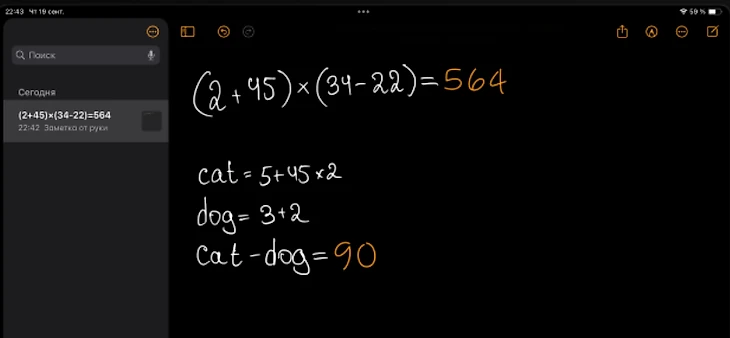 22:43 Чт 19 сент.
59 %
Поиск
Сегодня
(2+45)×(34−22)=564
22:42 Заметка от руки
(2+45)×(34−22)=564
cat = 5+45×2
dog = 3+2
cat − dog = 90